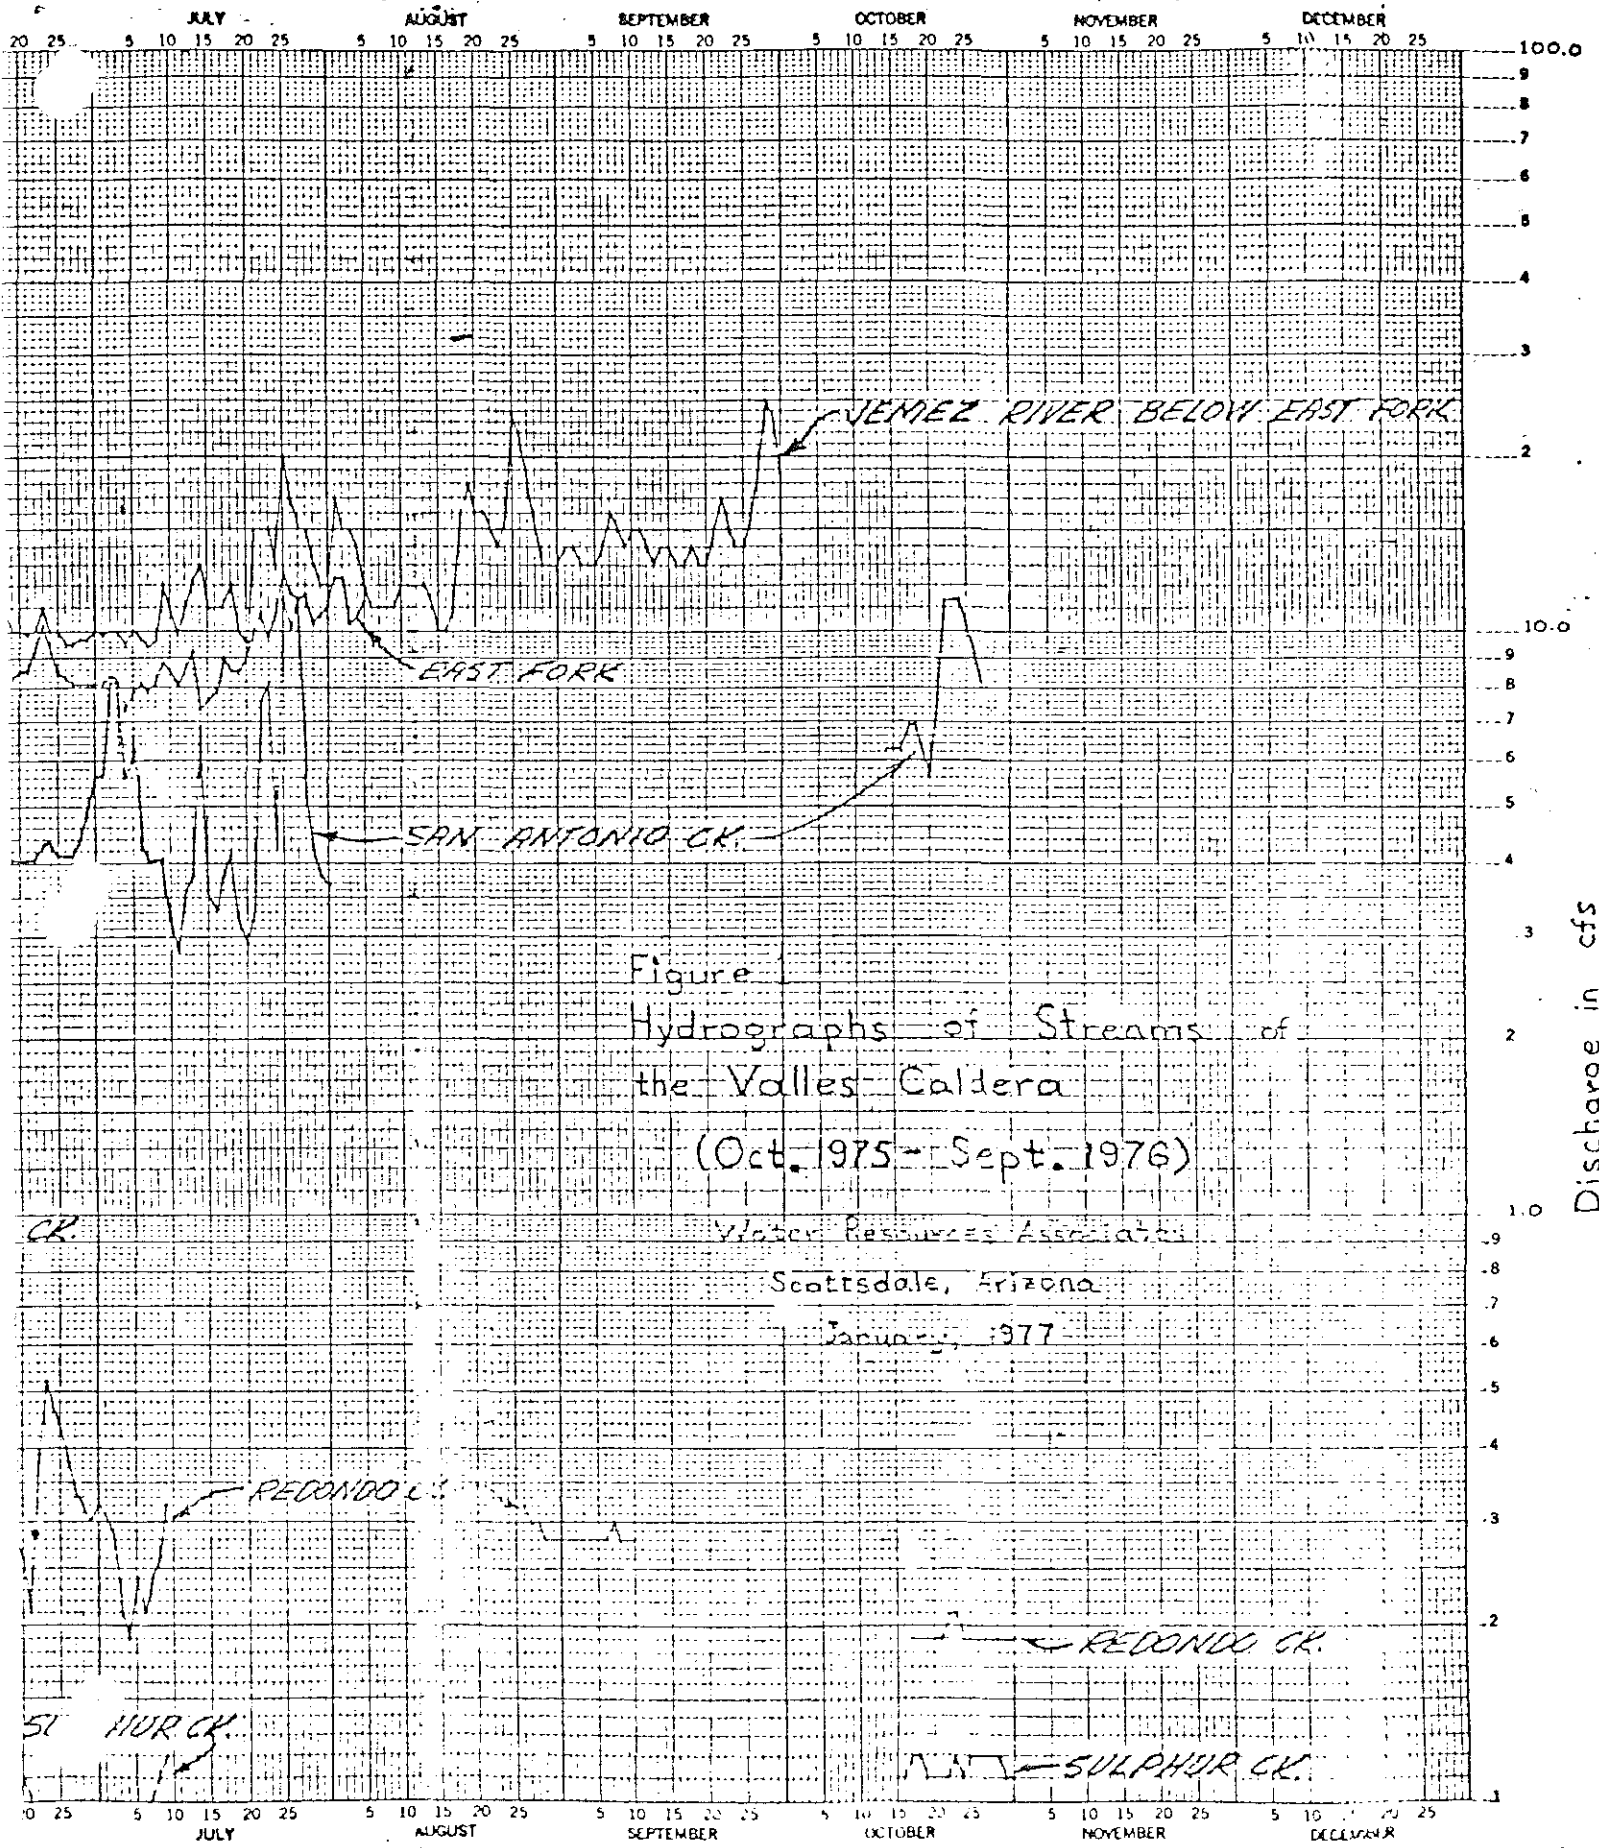 JULY AUGUST SEPTEMBER OCTOBER NOVEMBER DECEMBER
20 25 5 10 15 20 25 5 10 15 20 25 5 10 15 20 25 5 10 15 20 25 5 10 15 20 25 5 10 15 20 25
100.0
9
8
7
6
5
4
3
JEMEZ RIVER BELOW EAST FORK
2
10.0
EAST FORK
9
8
7
6
5
SAN ANTONIO CK.
4
3
Discharge in cfs
Figure
Hydrographs of Streams of
2
the Valles Caldera
(Oct. 1975 - Sept. 1976)
1.0
CK.
Water Resources Associates
.9
.8
Scottsdale, Arizona
.7
January, 1977
.6
.5
.4
REDONDO
.3
.2
REDONDO CK.
HUR CK.
SULPHUR CK.
.1
20 25 5 10 15 20 25 5 10 15 20 25 5 10 15 20 25 5 10 15 20 25 5 10 15 20 25 5 10 15 20 25
JULY AUGUST SEPTEMBER OCTOBER NOVEMBER DECEMBER